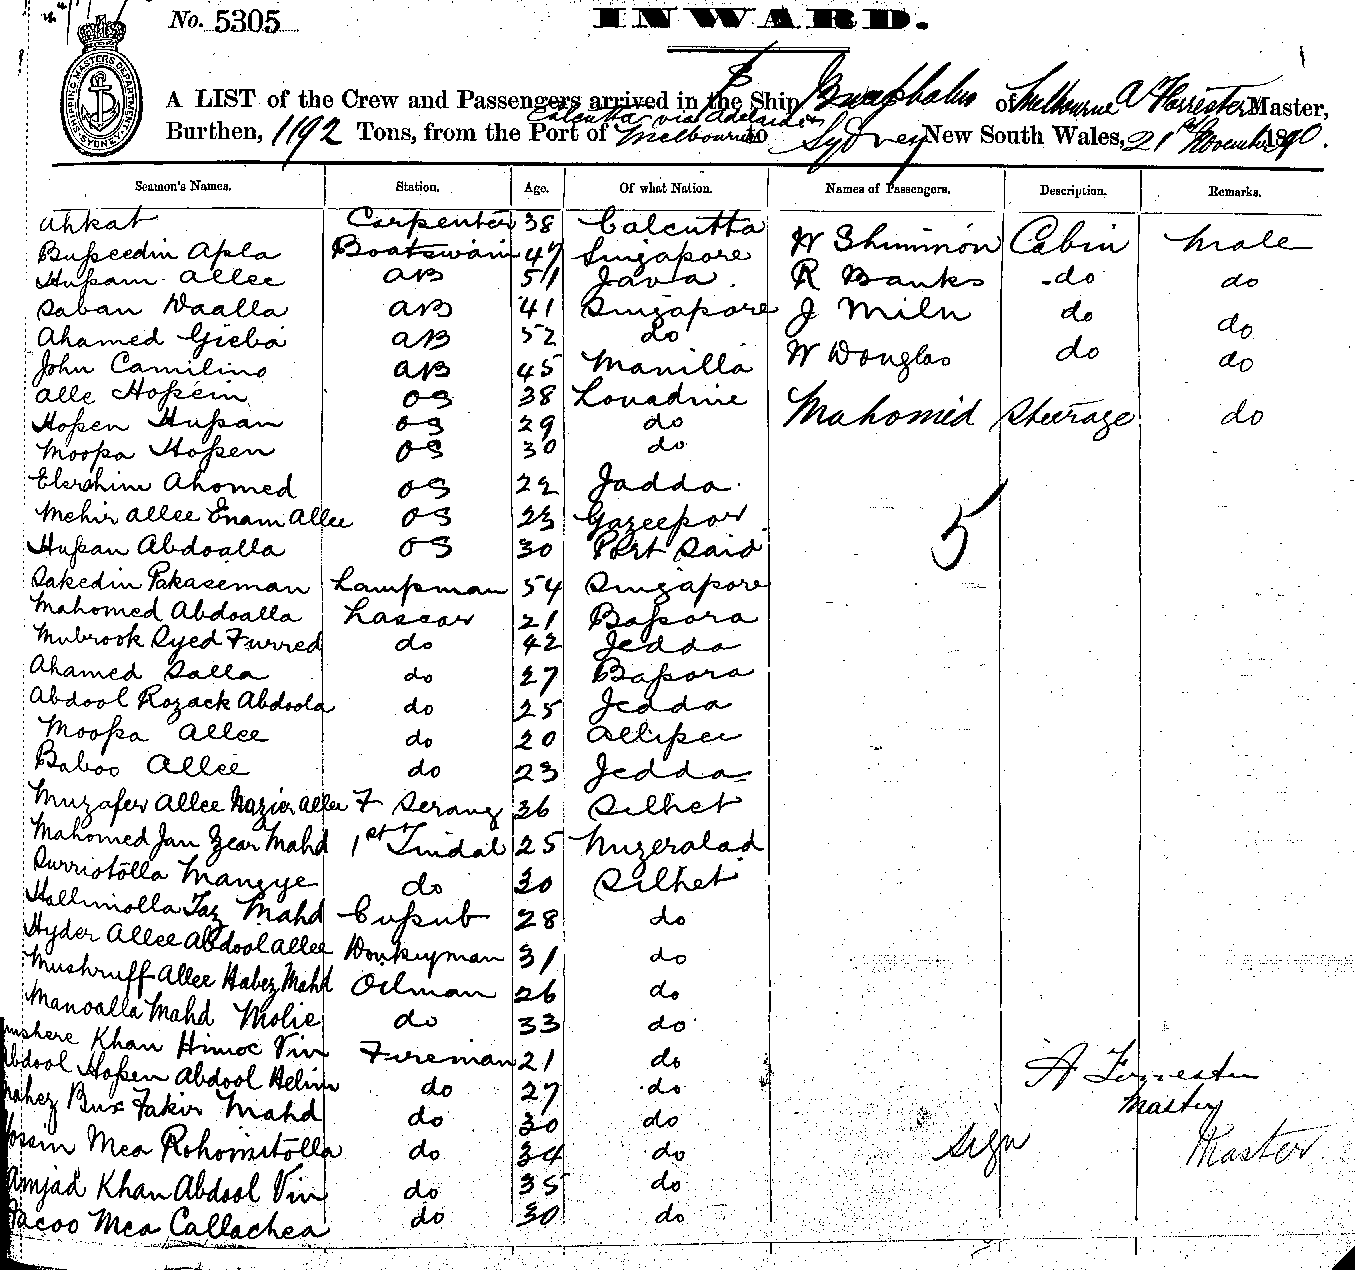 No. 5305
INWARD.
A LIST of the Crew and Passengers arrived in the Ship Gnaphalus of Melbourne A Forrester Master,
Calcutta via Adelaide &
Burthen, 1192 Tons, from the Port of Melbourne to Sydney New South Wales, 21st November 1890.
Seamen's Names. Station. Age. Of what Nation. Names of Passengers. Description. Remarks.
Ahkat Carpenter 38 Calcutta W Shimmon Cabin Male
Busseedin Apla Boatswain 47 Singapore
Hussam Allee AB 51 Java. R Banks do do
Saban Daalla AB 41 Singapore J Miln do do
Ahamed Gieba AB 52 do
John Camilino AB 45 Manilla W Douglas do do
Alle Hossein OS 38 Mahomed Steerage do
Hossen Hussan OS 29 do
Moosa Hossen OS 30 do
Ebershim Ahomed OS 22 Jadda.
Mehir Allee Enam Allee OS 23 Gazeepor 5
Hussan Abdoalla OS 30 Port Said
Sakedin Pakaseman Lampman 54 Singapore
Mahomed Abdoalla Lascar 21 Bassora
Mubrook Syed Furred do 42 Jedda
Ahamed Salla do 27 Bassora
Abdool Rozack Abdoola do 25 Jedda
Moosa Allee do 20 Allipee
Baboo Allee do 23 Jedda
Muzafer Allee Nazier Allee F Serang 36 Silhet
Mahomed Jan Zear Mahd 1st Tindal 25
Surriotolla Mangye do 30 Silhet
Hallimolla Taz Mahd Cussub 28 do
Hyder Allee Abdool Allee Donkeyman 31 do
Mushruff Allee Habez Mahd Oilman 26 do
Manoalla Mahd Molie do 33 do
Khan Himoc Vin Fireman 21 do
Abdool Hossen Abdool Helim do 27 do A Forrester
Bux Fakir Mahd do 30 do Master
Mea Rohomitolla do 34 do sign Master
Amjad Khan Abdool Vin do 35 do
Mea Callachea do 30 do